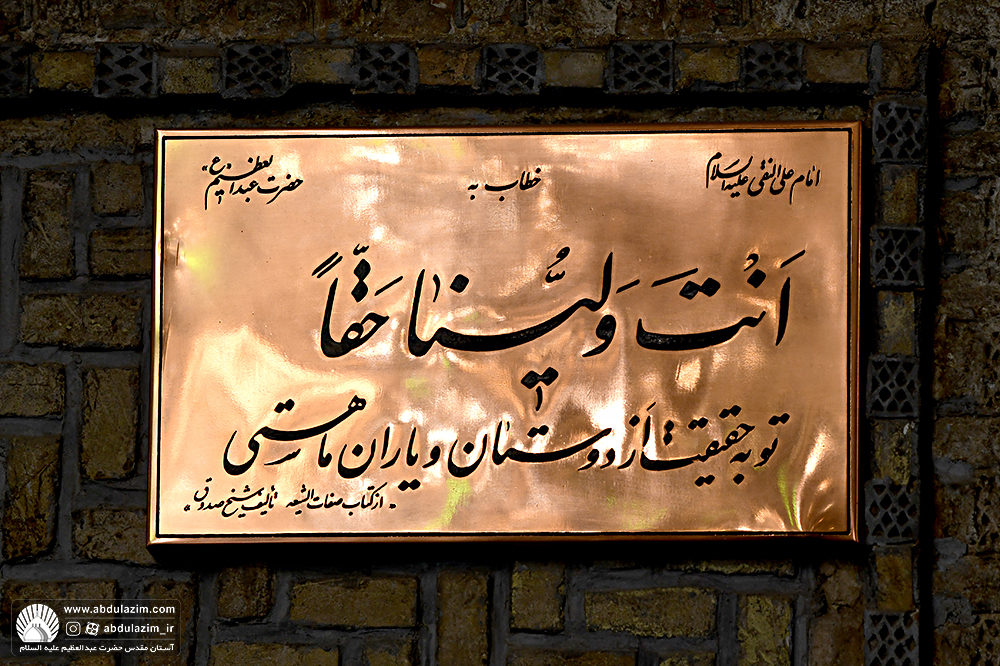 امام علی النقی علیه السلام خطاب به حضرت عبدالعظیم ع»
اَنْتَ وَلِیُّنٰا حَقّاً
تو به حقیقت از دوستان و یاران ما هستی
« از کتاب صفات الشیعه تألیف شیخ صدوق »
www.abdulazim.com
abdulazim_ir
آستان مقدس حضرت عبدالعظیم علیه السلام